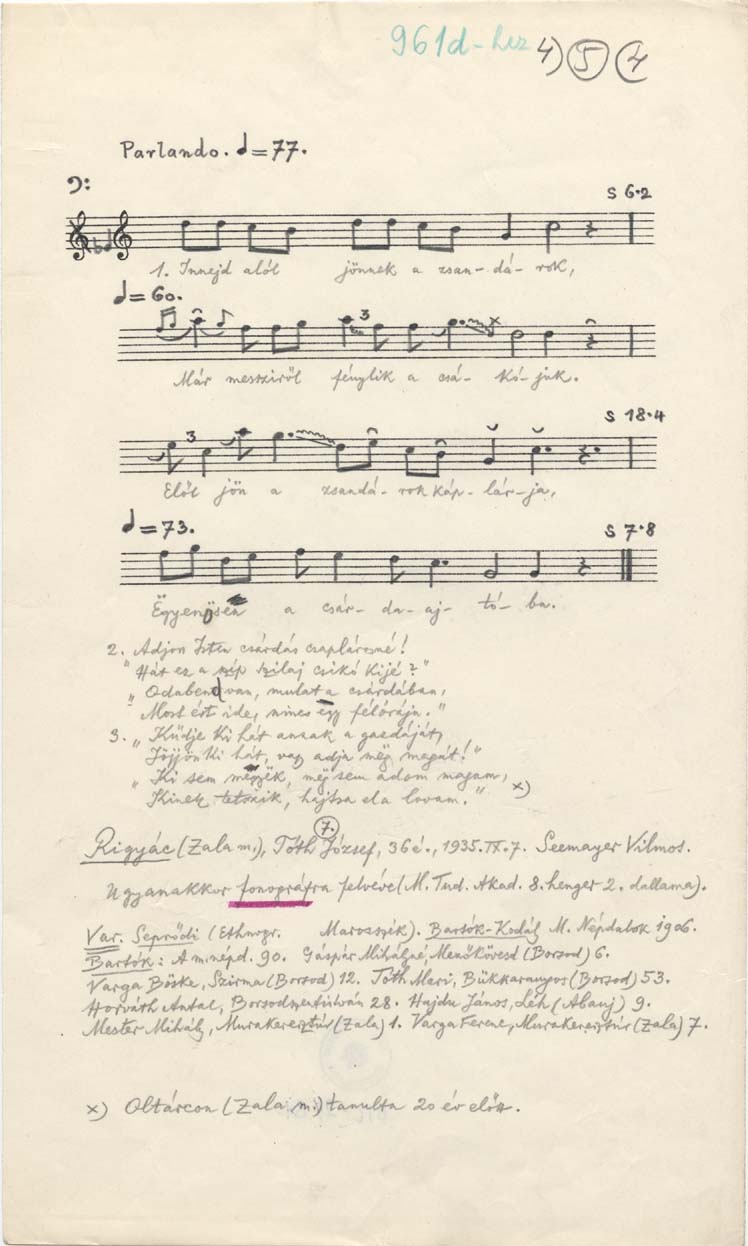 961d-hez 4) 5 4
Parlando. ♩=77.
S 6.2
1. Innejd alól jönnek a zsan-dá-rok,
♩=60.
3
Már messziről fénylik a csá-kó-juk.
S 18.4
3
Elől jön a zsandá-rok káp-lár-ja,
♩=73.
S 7.8
Ëgyenösen a csár-da-aj-tó-ba.
2. Adjon Isten csárdás csaplárosné!
"Hát ez a szép szilaj csikó kijé?"
"Odabent van, mulat a csárdában,
Most ért ide, nincs ëgy félórája."
3. "Küdje ki hát annak a gazdáját,
Jöjjön ki hát, vagy adja mëg magát!"
"Ki sem mëgyëk, mëg sem adom magam,
Kinek tetszik, hajtsa el a lovam." x)
7.
Rigyác (Zala m.), Tóth József, 36 é., 1935.IX.7. Seemayer Vilmos.
Ugyanakkor fonográfra felvéve (M. Tud. Akad. 8. henger 2. dallama).
Var. Seprődi (Ethnogr. Marosszék). Bartók-Kodály M. Népdalok 1906.
Bartók: A m. népd. 90. Gáspár Mihályné, Mezőkövesd (Borsod) 6.
Varga Böske, Szirma (Borsod) 12. Tóth Mari, Bükkaranyos (Borsod) 53.
Horváth Antal, Borsodszentistván 28. Hajdu János, Léh (Abauj) 9.
Mester Mihály, Murakeresztúr (Zala) 1. Varga Ferenc, Murakeresztúr (Zala) 7.
x) Oltárcon (Zala m.) tanulta 20 év előtt.